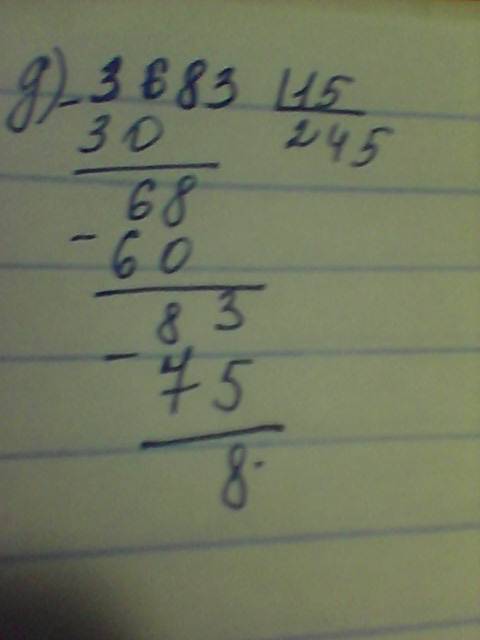 д) - 3683 | 15
30 245
68
- 60
83
- 75
8.